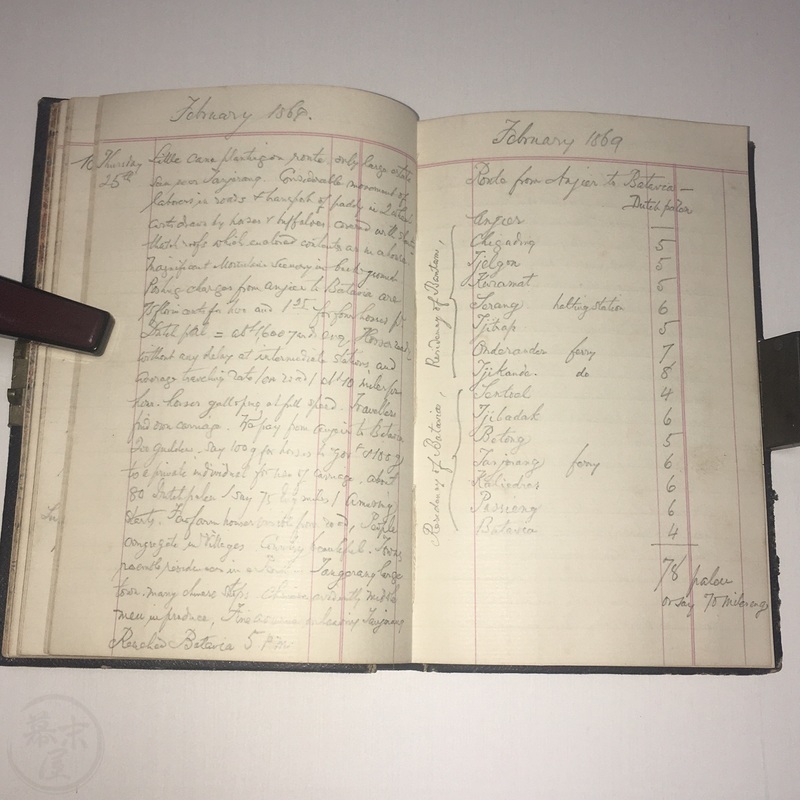 February 1869.
Thursday 25th
Little cane planting on route, only large estate
seen near Tanjorang. Considerable movement of
labourers in roads & transport of paddy in 2 wheel
carts drawn by horses & buffaloes covered with
thatch roofs which enclosed contents as in a house.
Magnificent Mountain Scenery in back ground.
Posting charges from Anjier to Batavia are
for four horses p
Dutch pole = abt 1,600 yards Eng. Horses ready
without any delay at intermediate stations, and
average travelling rate / on road / abt 10 miles per
hour. horses galloping at full speed. Travellers
find own carriage. We pay from Anjier to Batavia
guilders, say 100 g for horses to Govt & 105 g
to a private individual for hire of carriage. about
80 Dutch palen / say 75 Eng miles /
Few farm houses visible from road, People
congregate in Villages. Country beautiful.
residences in Tangorang large
town. many chinese shops. Chinese evidently middle
men in produce,
Reached Batavia 5 P.M.
February 1869
Route from Anjier to Batavia —
Dutch palen
Residency of Bantam,
Anjier 1
Chigading 5
Tjelgon 5
Karamat 5
Serang halting station 6
Tjitrap 5
Onderander ferry 7
Tjikande do 8
Residency of Batavia,
Sentool 4
Tjiladak 6
Betong 5
Tanjorang ferry 6
Kalideras 6
Passieng 6
Batavia 4
78 palen
or say 70 miles eng
幕末屋